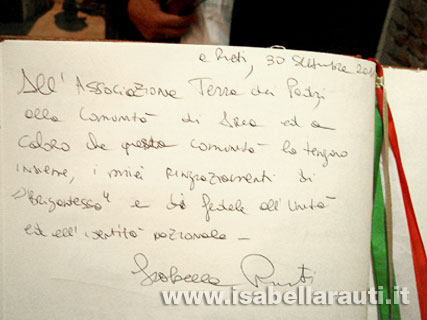 Rieti, 30 Settembre
All'Associazione Terra dei Padri
alla Comunità di ed a
coloro che questa comunità la tengono
insieme, i miei ringraziamenti di
"Brigantessa" e di fedele all'Unità
ed all'identità nazionale —
Isabella Rauti
www.isabellarauti.it